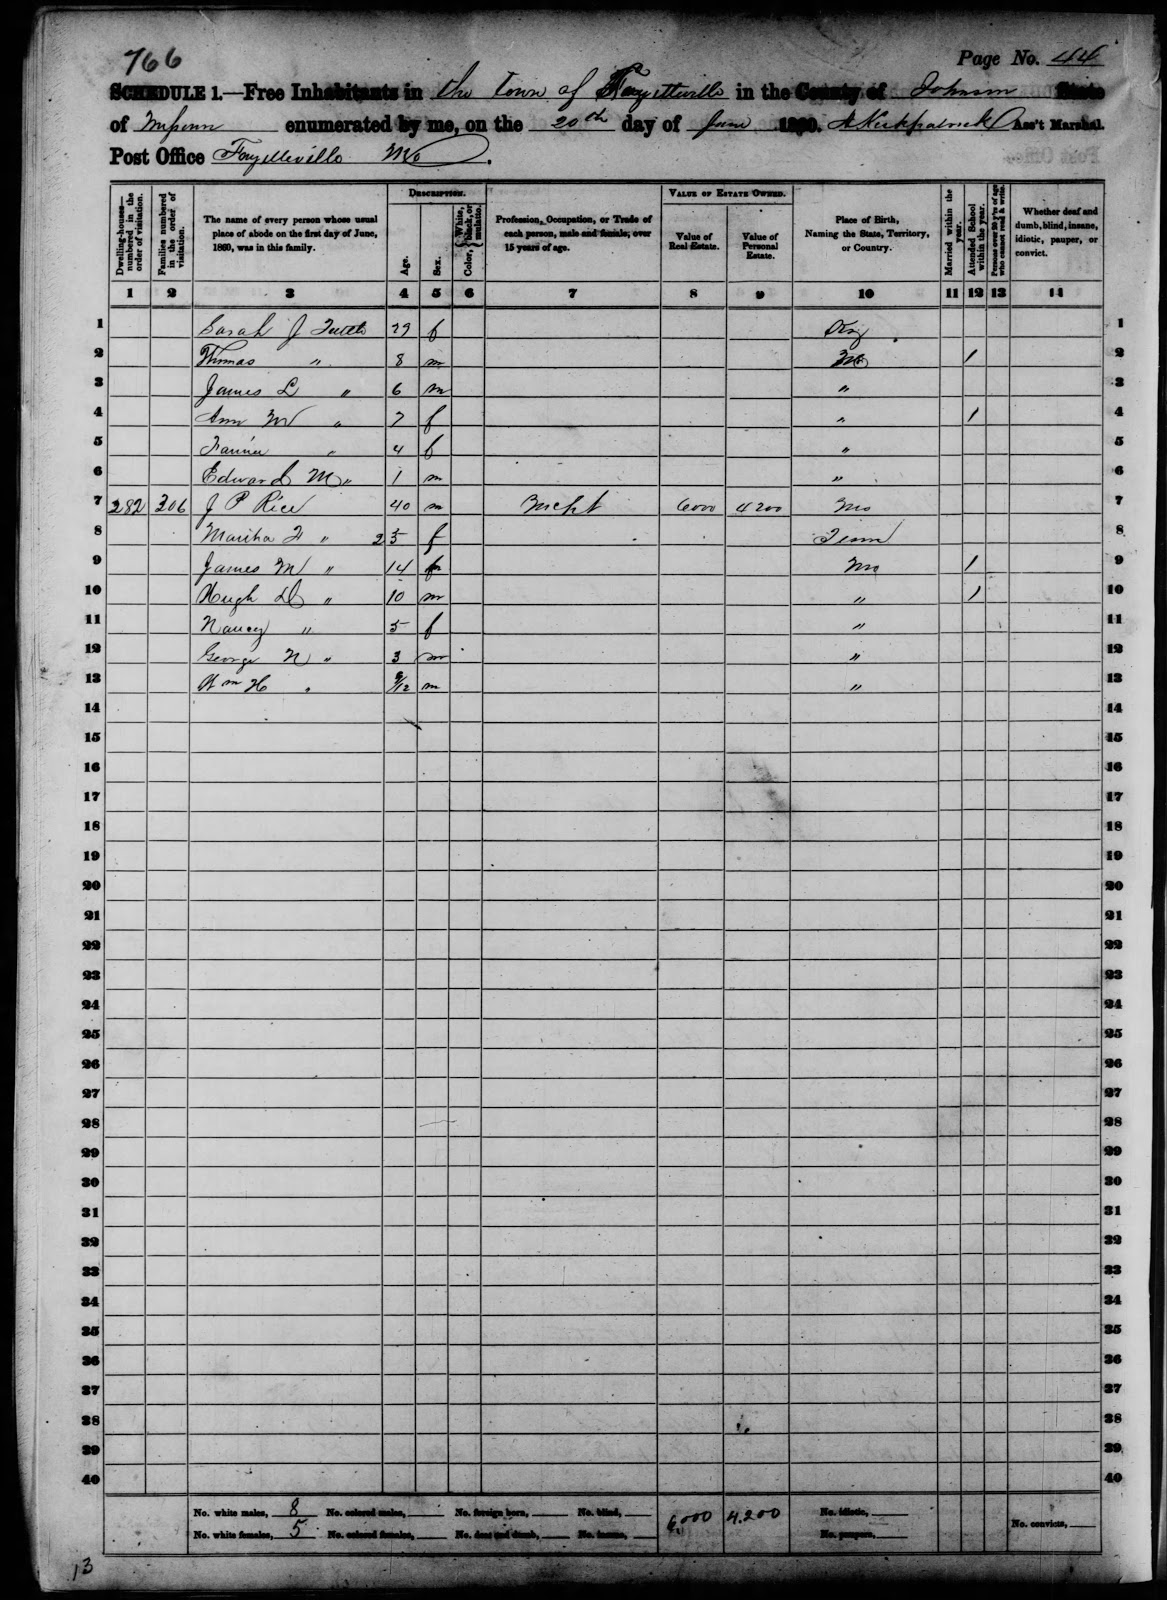 766
Page No. 44
SCHEDULE 1.—Free Inhabitants in the Town of Fayetteville in the County of Johnson State
of Missouri enumerated by me, on the 20th day of June 1860. Kirkpatrick Ass't Marshal.
Post Office Fayetteville Mo.
Dwelling-houses—numbered in the order of visitation.
Families numbered in the order of visitation.
The name of every person whose usual place of abode on the first day of June, 1860, was in this family.
DESCRIPTION.
Age.
Sex.
Color, { White, black, or mulatto.
Profession, Occupation, or Trade of each person, male and female, over 15 years of age.
VALUE OF ESTATE OWNED.
Value of Real Estate.
Value of Personal Estate.
Place of Birth, Naming the State, Territory, or Country.
Married within the year.
Attended School within the year.
Persons over 20 y'rs of age who cannot read & write.
Whether deaf and dumb, blind, insane, idiotic, pauper, or convict.
1 2 3 4 5 6 7 8 9 10 11 12 13 14
1 Sarah J 29 f 1
2 Thomas " 8 m Mo / 2
3 James L " 6 m " 3
4 Ann M " 7 f " / 4
5 Fannie " 4 f " 5
6 Edward M " 1 m " 6
7 282 306 J P Rice 40 m Mcht 6000 4200 Mo 7
8 Martha F " 25 f Tenn 8
9 James M " 14 m Mo / 9
10 Hugh " 10 m " / 10
11 Nancy " 5 f " 11
12 George N " 3 m " 12
13 Wm H " /12 m " 13
14 14
15 15
16 16
17 17
18 18
19 19
20 20
21 21
22 22
23 23
24 24
25 25
26 26
27 27
28 28
29 29
30 30
31 31
32 32
33 33
34 34
35 35
36 36
37 37
38 38
39 39
40 40
No. white males, 8 No. colored males, No. foreign born, No. blind, 6,000 4.200 No. idiotic,
No. white females, 5 No. colored females, No. deaf and dumb, No. insane, No. paupers, No. convicts,
13